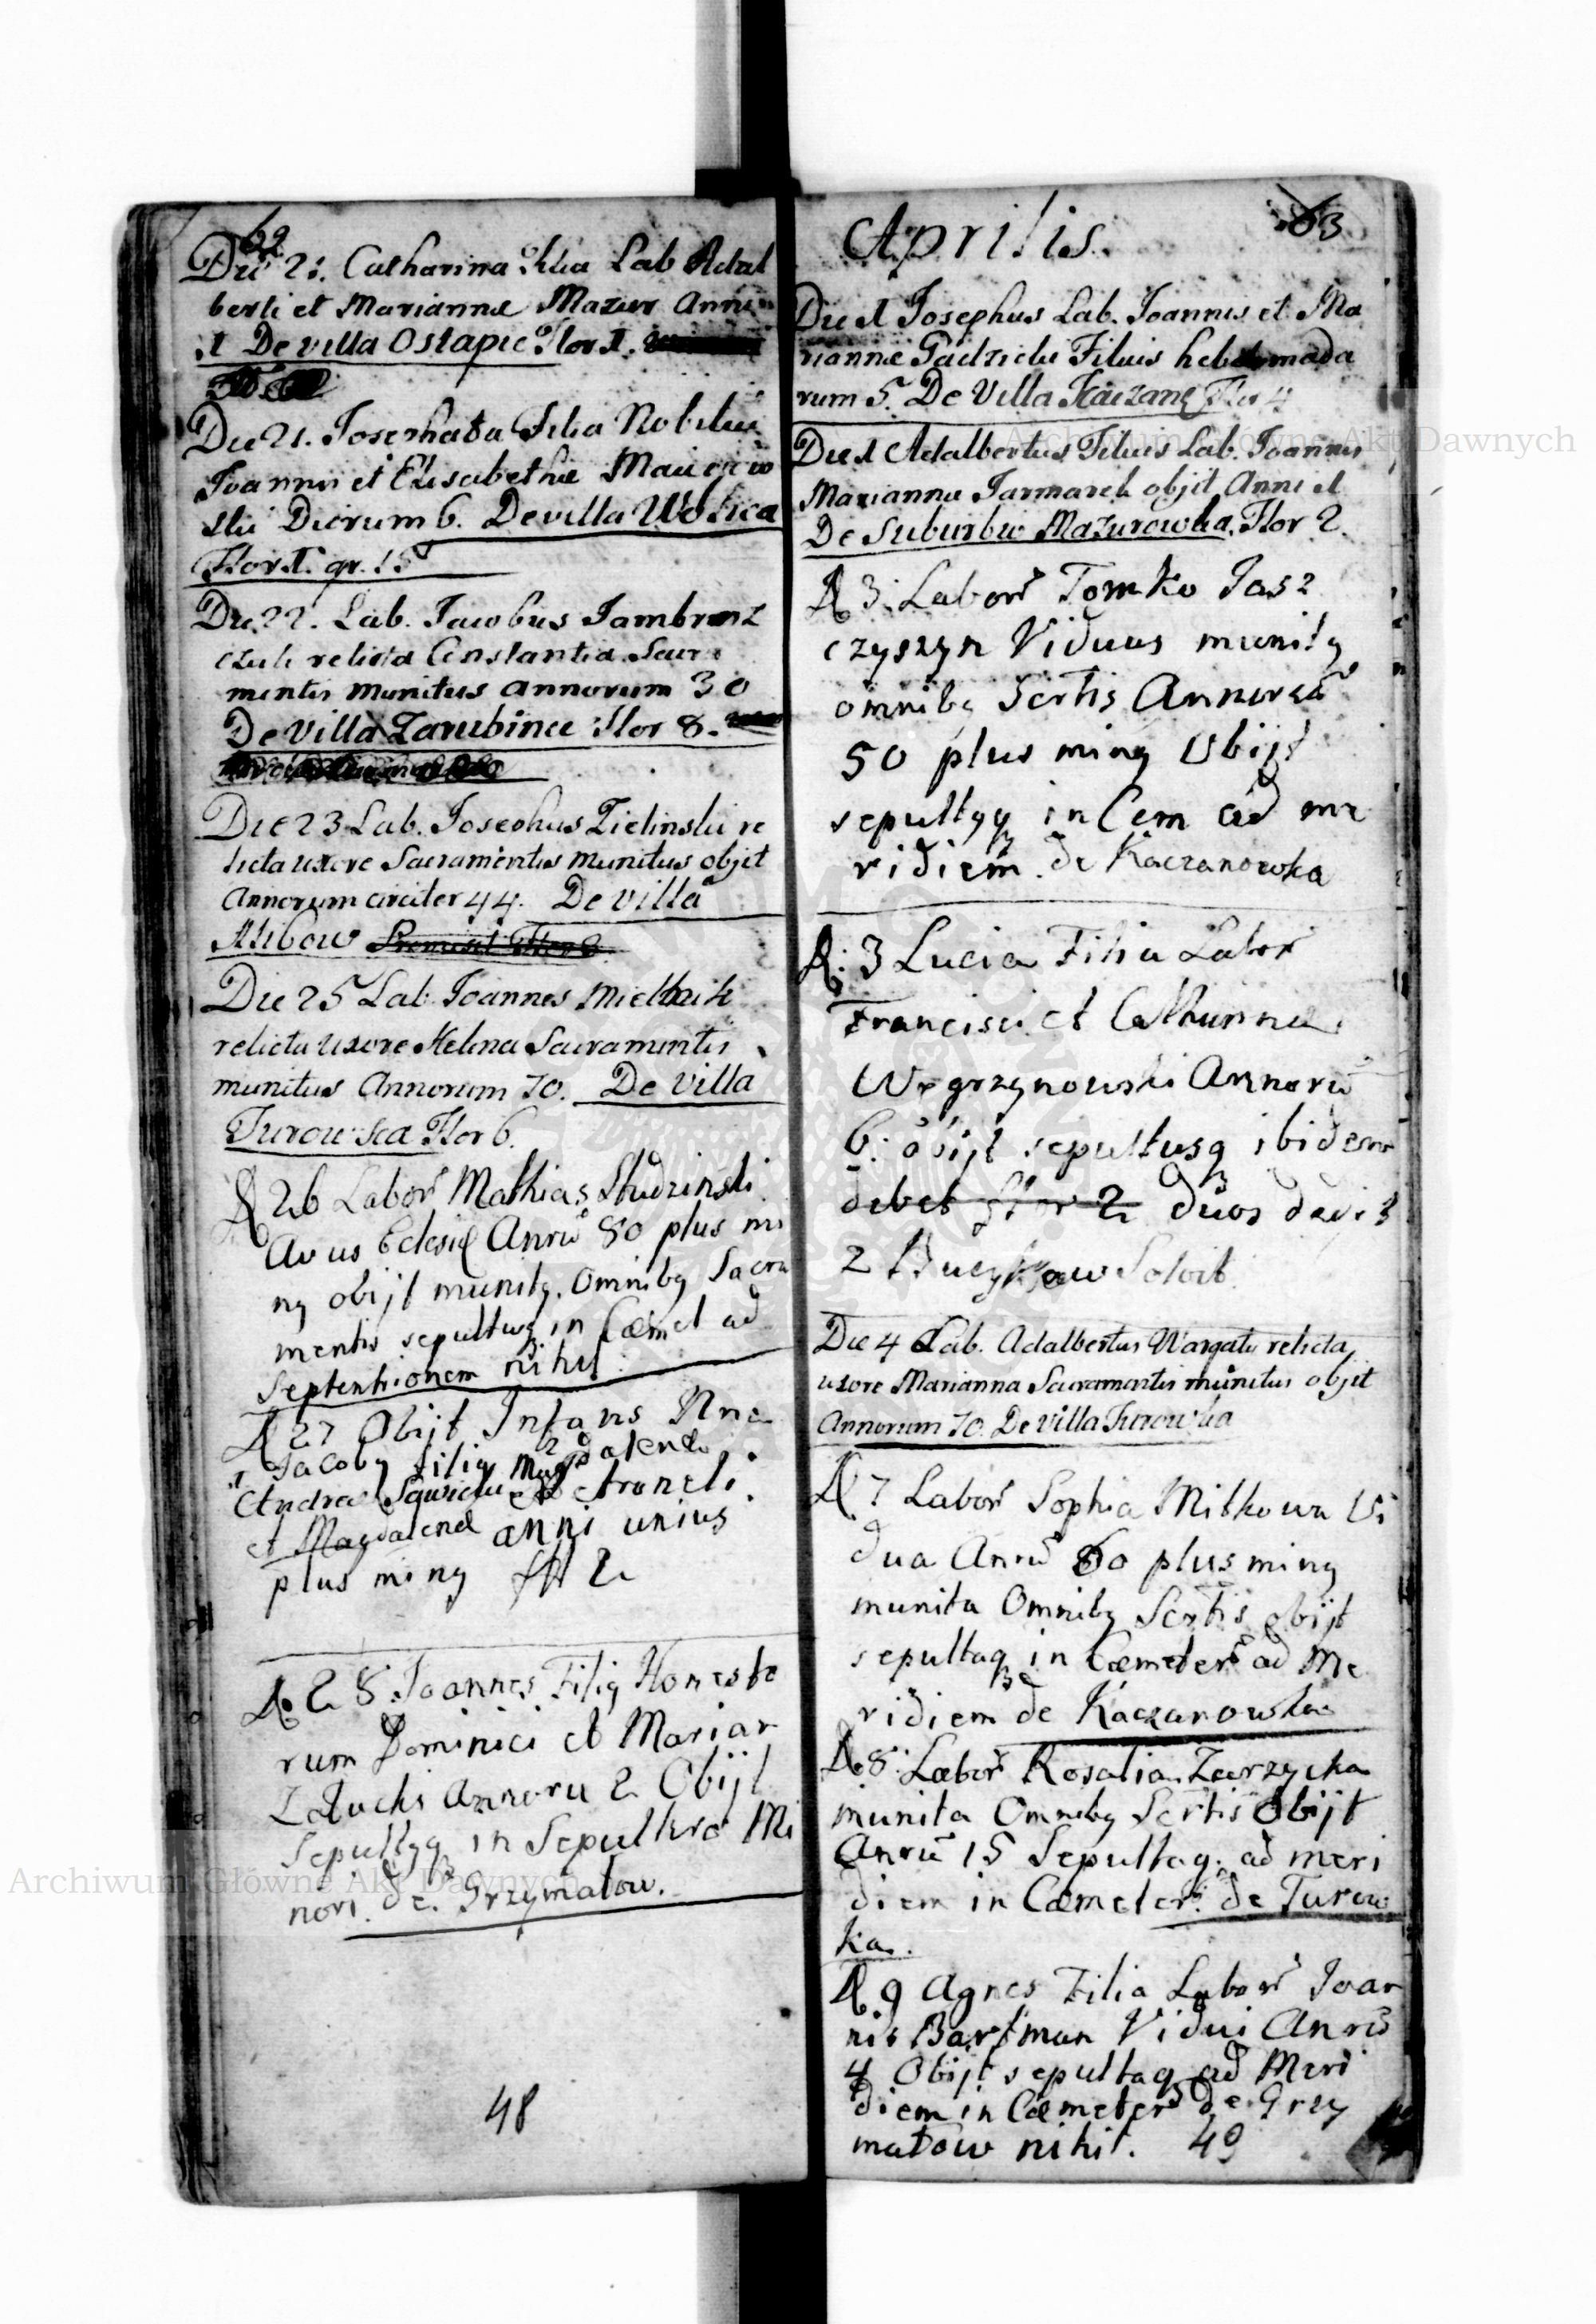 62
Die 21. Catharina Filia Lab Adal
berti et Mariannæ Mazur Anni
1 De villa Ostapie Flor 1.
Die 21. Josephata Filia Nobilium
Joannis et Elisabethæ
ski Dierum 6. De villa Wolica
Flor 1. gr. 15
Die 22. Lab. Jacobus
czuk relicta Constantia Sacra
mentis munitus annorum 30
De Villa Zarubince Flor 8.
Die 23 Lab. Josephus Zielinski re
licta uxore Sacramentis munitus objit
Annorum circiter 44. De villa
Flor
Die 25 Lab. Joannes Mielnik
relicta uxore Helena Sacramentis
munitus Annorum 70. De Villa
Turowka Flor 6.
D 26 Labor Mathias Studzinski
Avus Eclesiæ Anrũ 80 plus mi
ng obijt munitg. Omnibg Sacra
mentis sepultusq in Cæmet ad
Septentrionem nihil
D 27 Obijt Infans
Jacobg filig Magdalenæ
Andreæ
et Magdalenæ anni unius
plus ming fl 2
D. 28. Joannes Filig Honesto
rum Dominici et Marian
Zaluchi Annoru 2 Obijt
Sepultgq in Sepultura Mi
nori. de. Grzymalow.
48
Aprilis.
63
Die 1 Josephus Lab. Joannis et Ma
riannæ Gadzicki Filius hebdomada
rum 5. De Villa Kaczan Flor 4
Die 1 Adalbertus Filius Lab. Joannis
Mariannæ Jarmarek objit Anni 1
De Suburbio Mazurowka. Flor 2.
D 3. Labor Tomko Jasz
czyszyn Viduus munitg
omnibg Scrtis Annorũ
50 plus ming Obijt
sepultgq in Cem ad me
ridiem. de Kaczanowka
D. 3 Lucia Filia Labor
Francisci et Catharinnæ
Węgrzynowski Annorũ
6. obijt sepultusq ibidem
debet flor 2 duos
2 Solvit
Die 4 Lab. Adalbertus Wargata relicta
uxore Marianna Sacramentis munitus objit
Annorum 70. De villa Turowka
D 7 Labor Sophia Mitkowa Vi
dua Anrũ 60 plus ming
munita Omnibg Scrtis obijt
sepultaq in Cæmeter ad Me
ridiem de Kaczanowka
D. 8. Labor Rosalia Zarzycka
munita Omnibg Scrtis Obijt
Anrũ 15 Sepultaq. ad meri
diem in Cæmeter. de Turow
ka.
D. 9 Agnes Filia Labor Joan
nis Bartman Vidui Anrũ
4 Obijt sepultaq ad Meri
diem in Cæmeter de. Grzy
małow nihil. 49
Archiwum Główne Akt Dawnych
Archiwum Główne Akt Dawnych